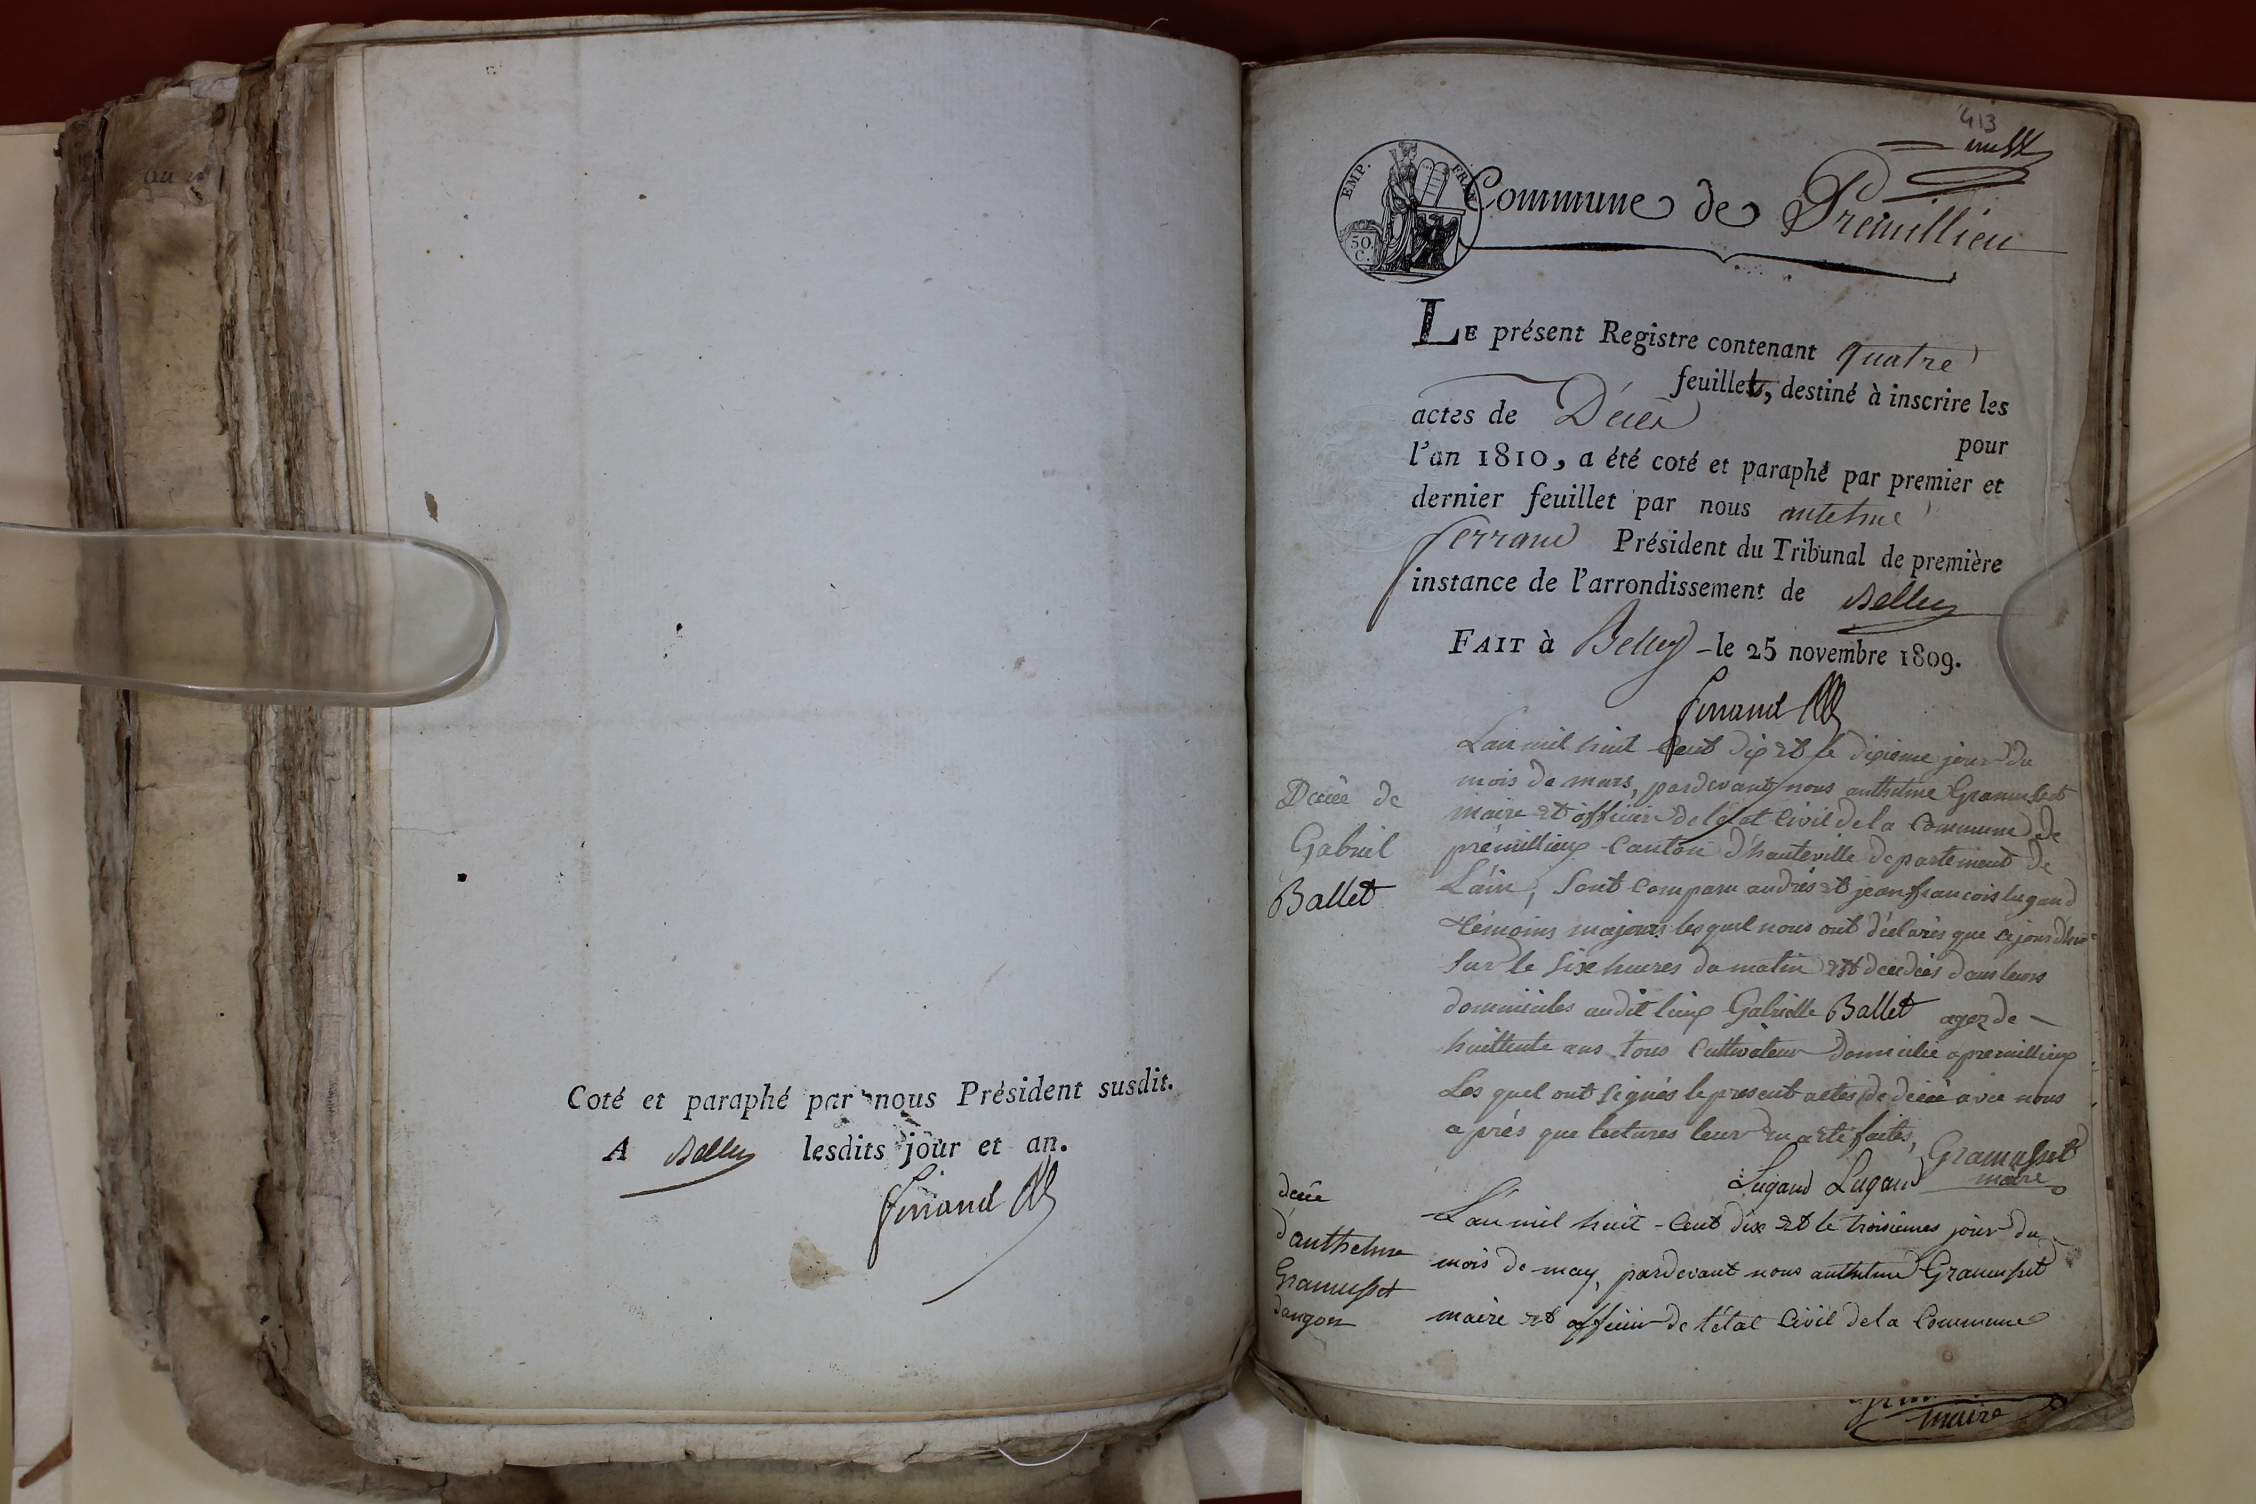 Coté et paraphé par nous Président susdit.
A Belley lesdits jour et an.
ferrand
413
EMP. FRAN.
50. C.
Commune de Prémillieu
LE présent Registre contenant quatre
feuillets, destiné à inscrire les
actes de Décès
pour
l'an 1810, a été coté et paraphé par premier et
dernier feuillet par nous antelme
ferrand Président du Tribunal de première
instance de l'arrondissement de Belley
FAIT à Belley le 25 novembre 1809.
ferrand
Décée de
Gabriel
Ballet
L'an mil huit cent dix et le dixieme jour du
mois de mars, pardevant nous anthelme Gramusset
maire et officier de l'état Civil de la Commune de
prémillieux Canton d'hauteville departement de
L'ain, Sont Comparu andrés et jean francois lugand
témoins majeurs lesquel nous ont déclarés que cejourdhui
Sur le Sixe heures du matin est decedés dans leurs
domniciles audit lieux Gabrielle Ballet agez de
huittente ans tous Cultivateur domicilié a premillieux
Les quel ont signés le present actes de décée avec nous
après que lectures leur en a eté faites,
Gramusset
Lugand Lugand maire
decée
d'anthelme
Gramusset
dangon
L'an mil huit Cent dix et le troisiemes jour du
mois de may, pardevant nous anthelme Gramusset
maire et officier de l'état Civil de la Commune
maire